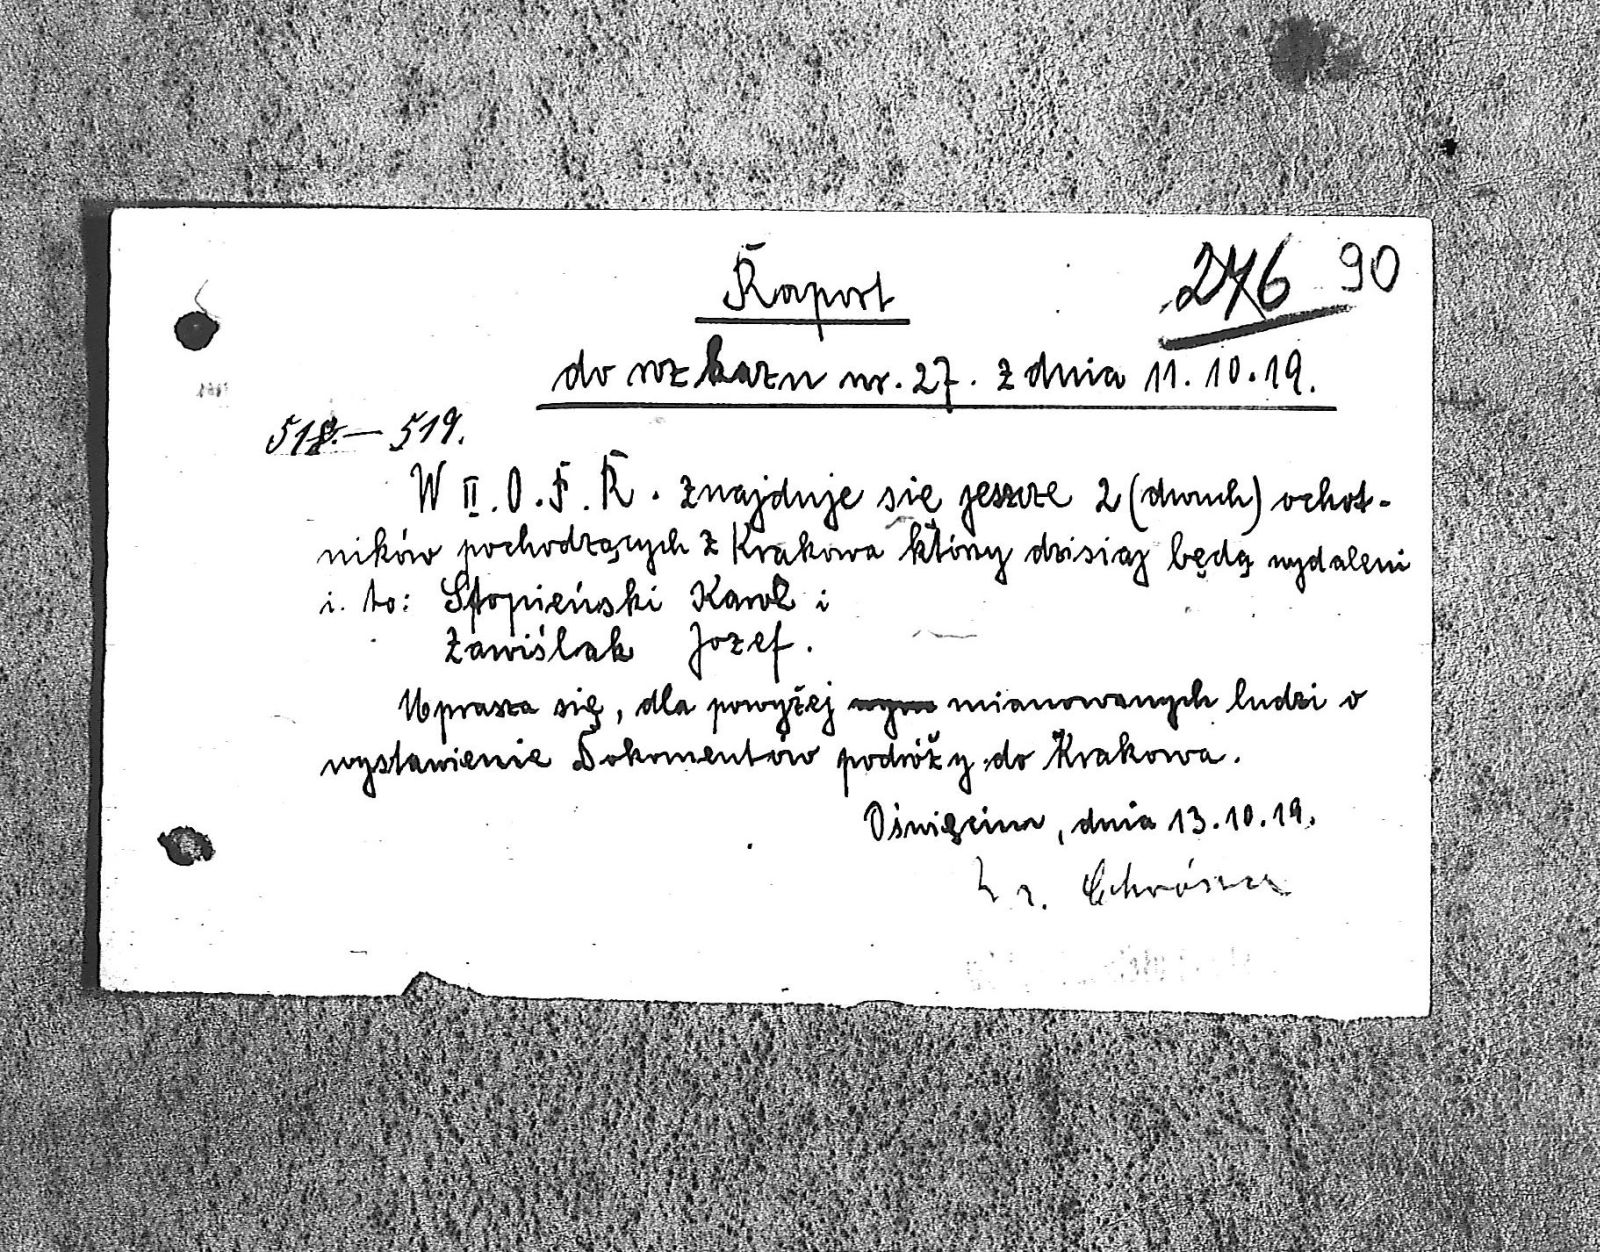 276 90
Raport
do rozkazu nr. 27. z dnia 11.10.19.
518.— 519.
W II. O. F. R. znajduje się jeszcze 2 (dwuch) ochot-
ników pochodzących z Krakowa którzy dzisiaj będą wydaleni
i. to: Stopieński Karol i
Zawiślak Jozef.
Uprasza się, dla powyżej mianowanych ludzi o
wystawienie Dokomentów podróży do Krakowa.
Oświęcim, dnia 13.10.19.